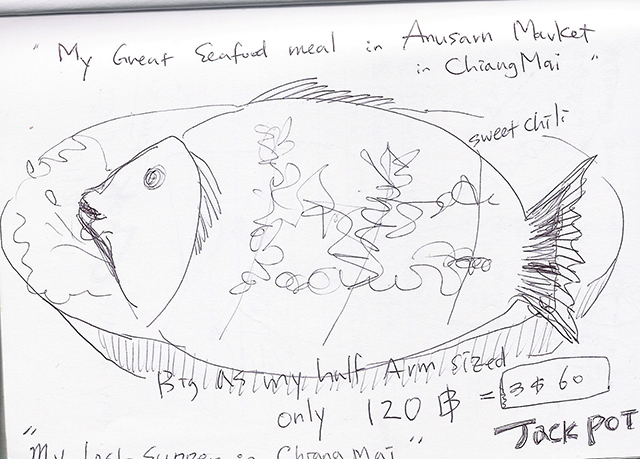 " My Great Seafood meal in Anusarn Market
in ChiangMai "
sweet chili
Big as my half Arm sized
only 120 ฿ = 3$ 60
JACKPOT
"My Last Supper in ChiangMai"